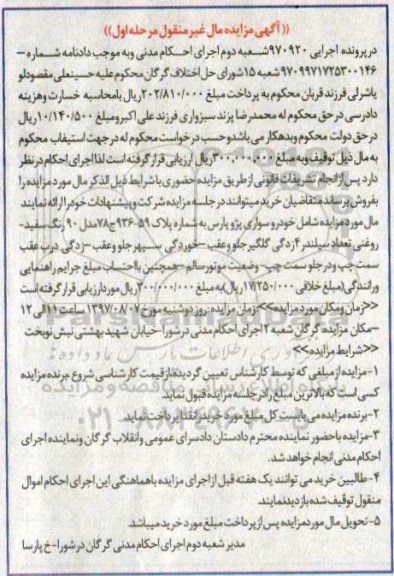 (( آگهی مزایده مال غیر منقول مرحله اول))
در پرونده اجرایی ۹۷۰۹۲۰شعبه دوم اجرای احکام مدنی وبه موجب دادنامه شماره –
۹۷۰۹۹۷۱۷۲۵۳۰۰۱۴۶ شعبه ۱۵شورای حل اختلاف گرگان محکوم علیه حسینعلی مقصودلو
یاشرلی فرزند قربان محکوم به پرداخت مبلغ ۲۰۲/۸۱۰/۰۰۰ریال بامحاسبه خسارت وهزینه
دادرسی در حق محکوم له محمدرضا پزند سبزواری فرزند علی اکبرومبلغ ۱۰/۱۴۰/۵۰۰ریال
در حق دولت محکوم وبدهکار می باشدوحسب درخواست محکوم له در جهت استیفاب محکوم
به مال ذیل توقیف وبه مبلغ ۳۰۰,۰۰۰,۰۰۰ریال ارزیابی قرار گرفته است لذا اجرای احکام در نظر
دارد پس از انجام تشریفات قانونی از طریق مزایده حضوری با شرایط ذیل الذکر مال مورد مزایده را
بفروش برساند متقاضیان خرید میتوانند در جلسه مزایده شرکت و پیشنهادات خود را ارائه نمایند
مال مورد مزایده شامل خودرو سواری پژو پارس به شماره پلاک ۵۹-۹۳۶ج۷۸مدل ۹۰ رنگ سفید–
روغنی تعداد سیلندر ۴زدگی گلگیر جلو وعقب –خوردگی سپهر جلو وعقب –زدگی درب عقب
سمت چپ ودر جلو سمت چپ- وضعیت موتور سالم –همچنین با احتساب مبلغ جرایم راهنمایی
ورانندگی(مبلغ خلافی ۱۷۲۵۰/۰۰۰ریال)به مبلغ ۳۰۰/۰۰۰/۰۰۰ریال مورد ارزیابی قرار گرفته است
<<زمان ومکان مورد مزایده>>زمان مزایده: روز دوشنبه مورخ ۱۳۹۷/۰۸/۰۷ ساعت ۱۱ الی ۱۲
–مکان مزایده: گرگان شعبه ۲ اجرای احکام مدنی در شورا –خیابان شهید بهشتی نبش نوبخت
<<شرایط مزایده>>
۱-مزایده از مبلغی که توسط کارشناس تعیین گردیده ازقیمت کارشناسی شروع ،برنده مزایده
کسی است که بالاترین مبلغ را در جلسه مزایده قبول نماید.
۲-برنده مزایده می بایست کل مبلغ مورد خرید را نقدا پرداخت نماید.
۳-مزایده با حضور نماینده محترم دادستان دادسرای عمومی وانقلاب گرگان ونماینده اجرای
احکام مدنی انجام خواهد شد.
۴-طالبین خرید می توانند یک هفته قبل از اجرای مزایده با هماهنگی این اجرای احکام اموال
منقول توقیف شده بازدیدنمایند.
۵-تحویل مال مورد مزایده پس از پرداخت مبلغ مورد خرید میباشد.
مدیر شعبه دوم اجرای احکام مدنی گرگان در شورا-خ پارسا